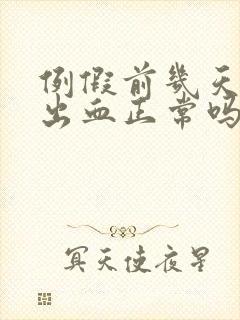 例假前幾天
出血正常吗
冥天使夜星